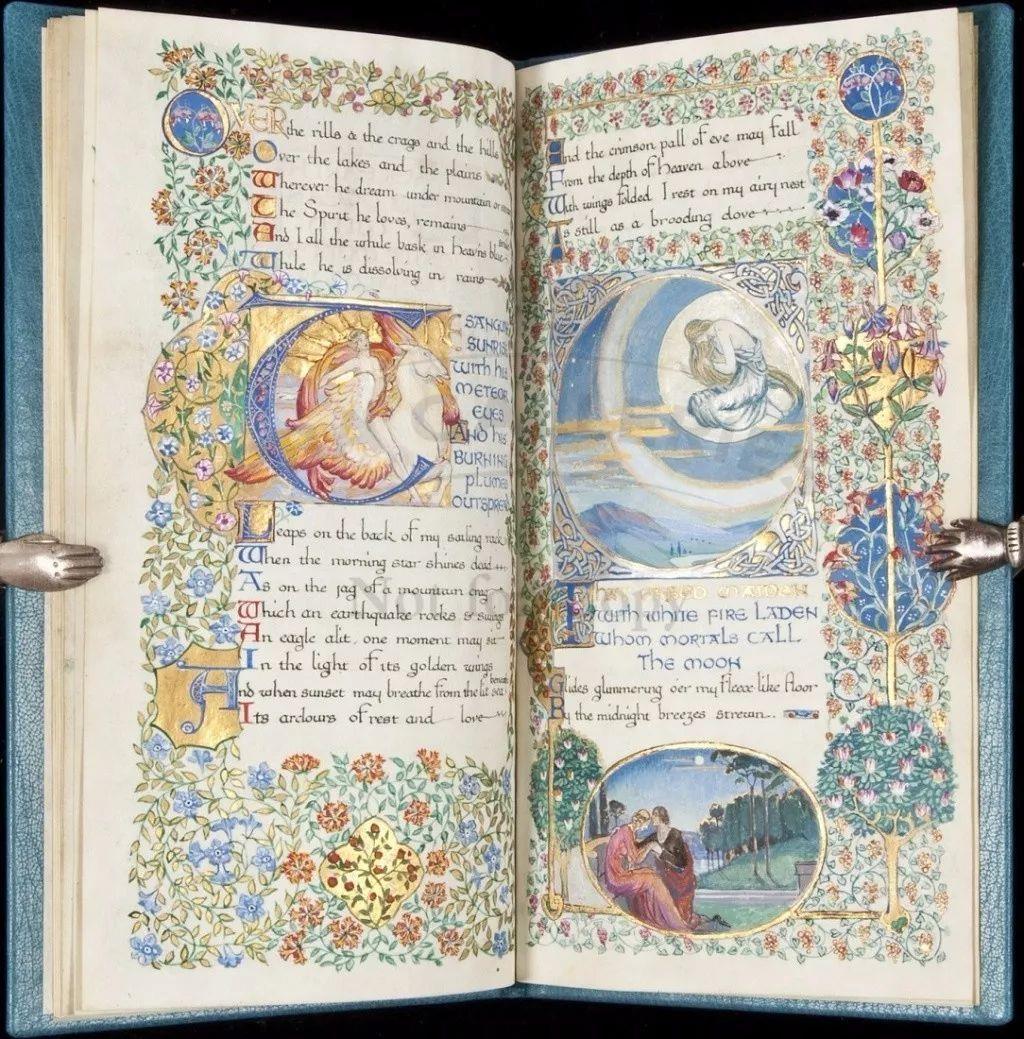 OVER the rills & the crags and the hills
Over the lakes and the plains
Wherever he dream under mountain or
The Spirit he loves, remains
And I all the while bask in heavns blue
While he is dissolving in rains
SANGUI
SUNRIS
WITH HIS
METEOR
EYES
AND his
BURNING
PLUMES
OUTSPREA
Leaps on the back of my sailing rack
When the morning star shines dead
As on the jag of a mountain crag
Which an earthquake rocks & swings
An eagle alit, one moment may sit
In the light of its golden wings
And when sunset may breathe from the lit sea beneath
Its ardours of rest and love
And the crimson pall of eve may fall
From the depth of heaven above
With wings folded I rest on my airy nest
As still as a brooding dove
MAIDEN
WITH WHITE FIRE LADEN
WHOM MORTALS CALL
THE MOON
Glides glimmering oer my fleece-like floor
By the midnight breezes strewn
Not for